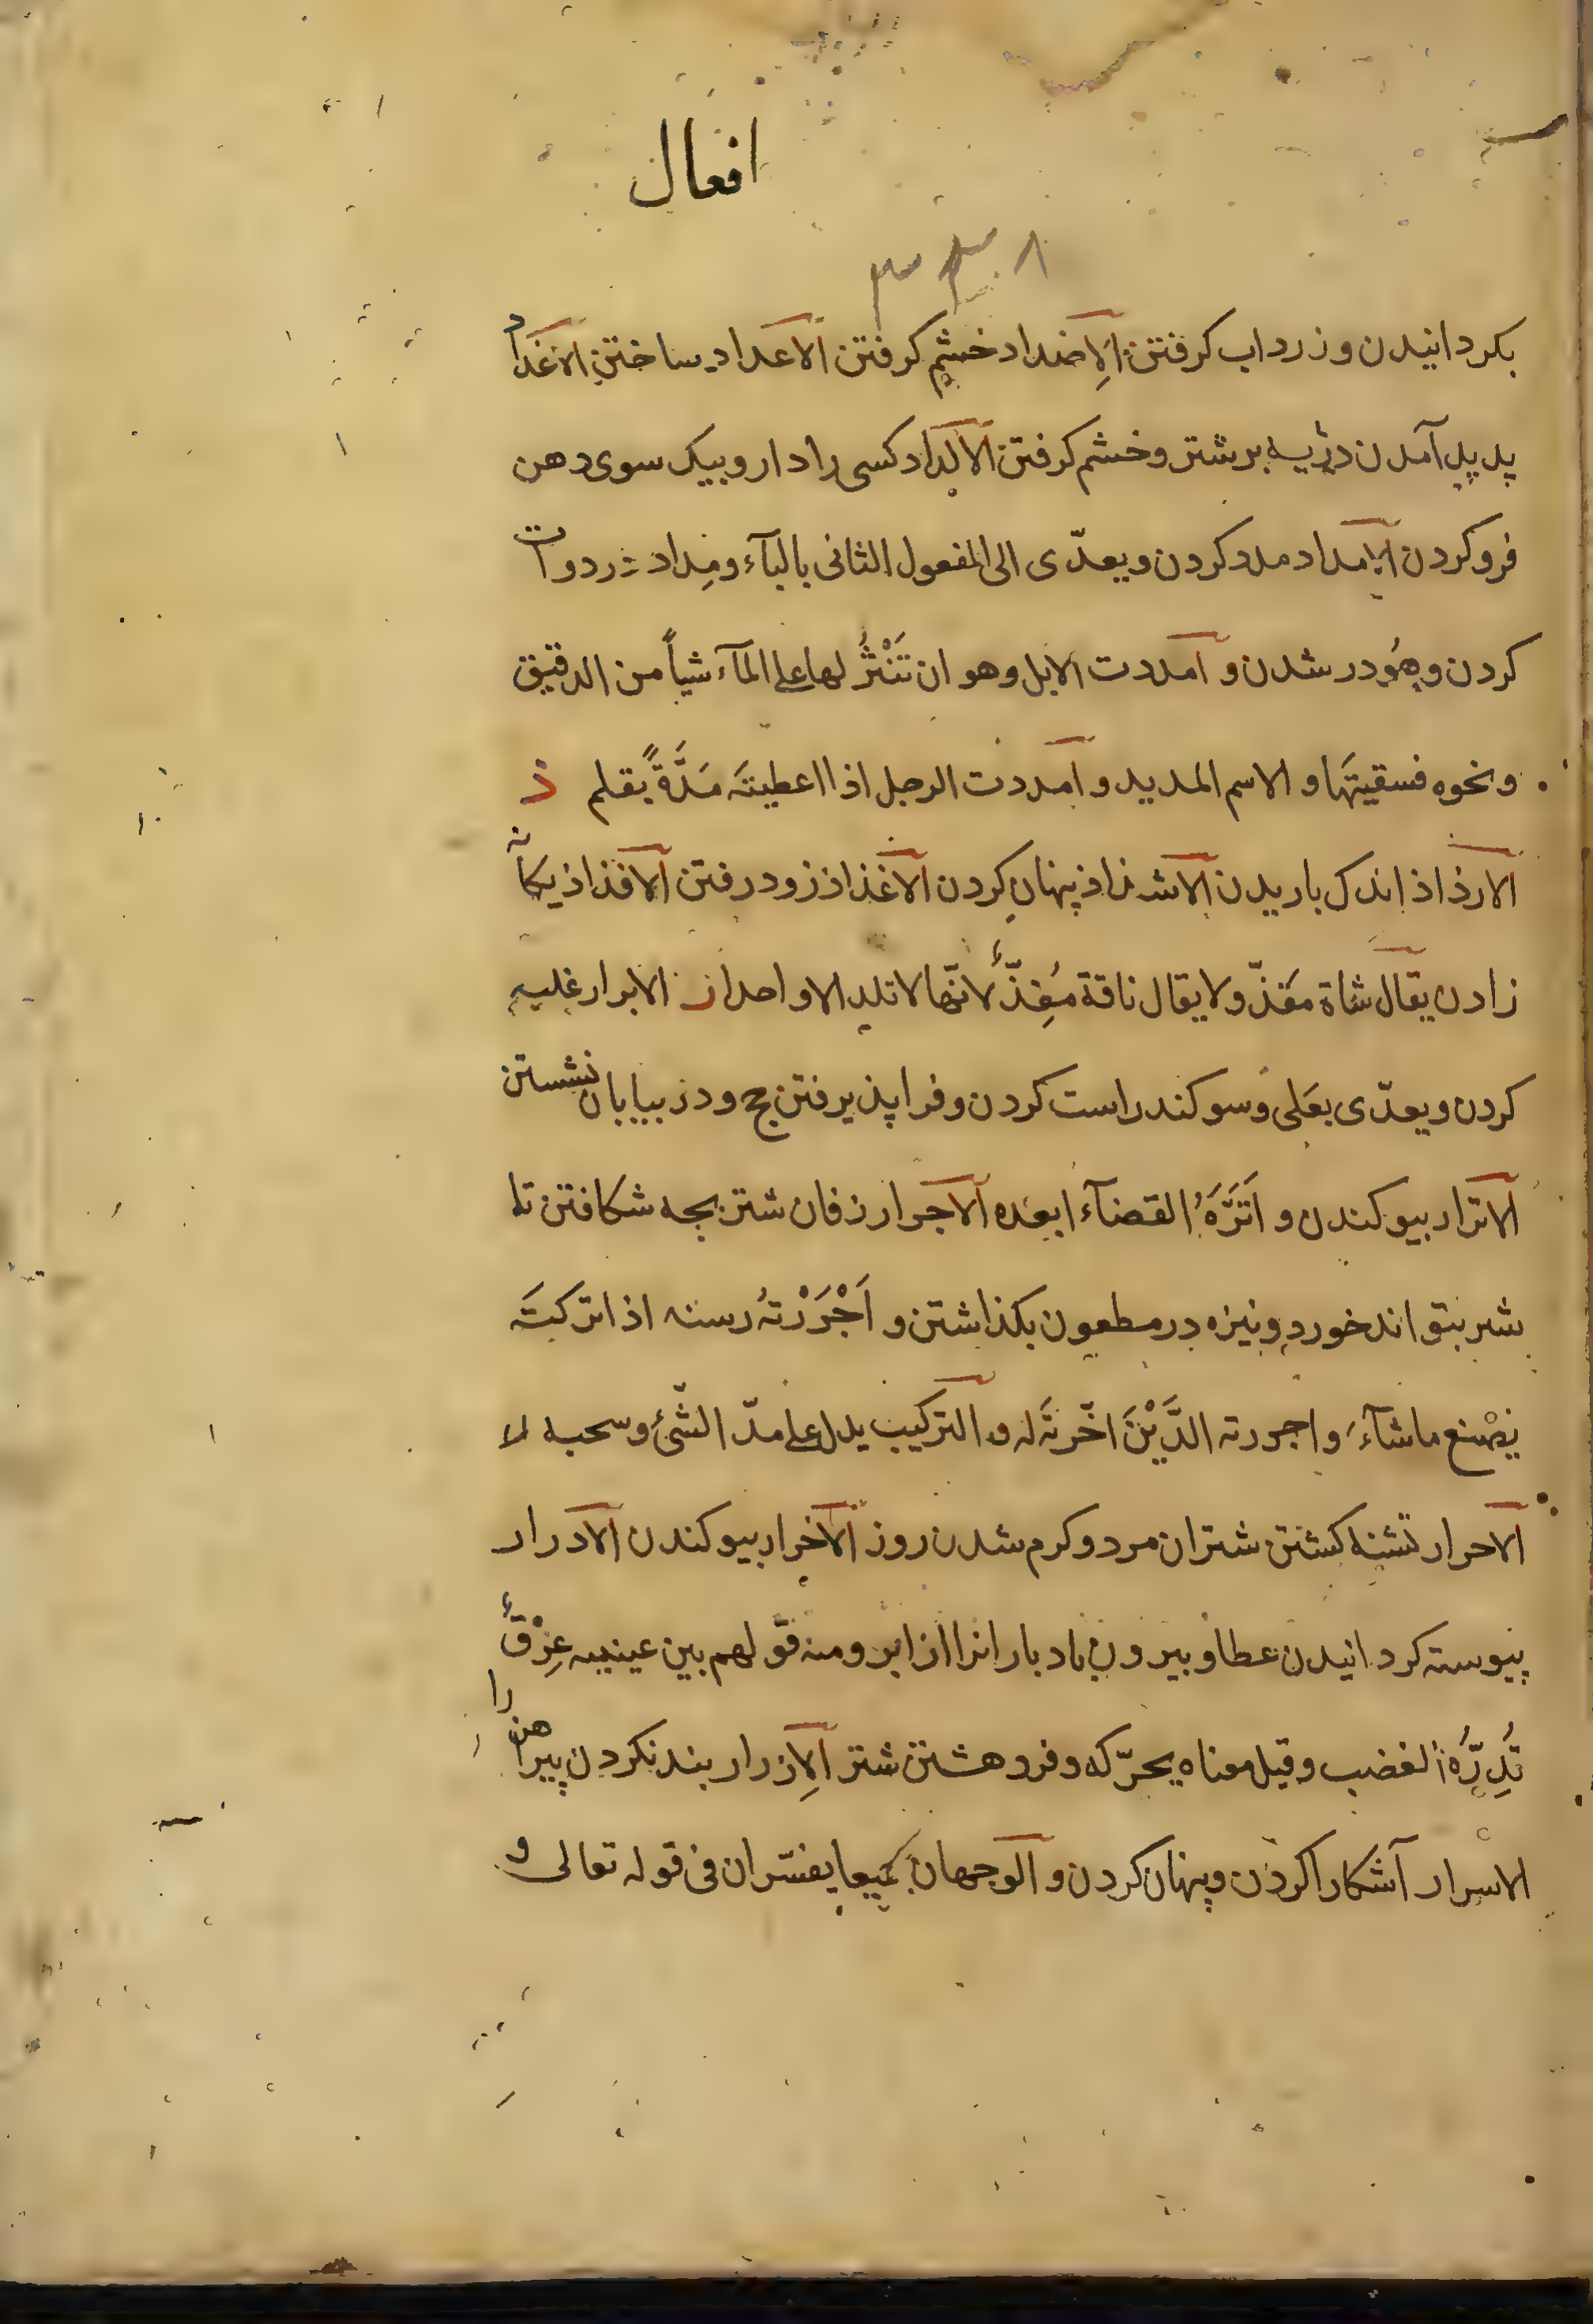 افعال
٣٣٨
بکردانیدن و زرداب کرفتن الاضداد خشم کرفتن الاعداد ساختن الاغداد
پدید آمدن دژپیه بر شتر و خشم کرفتن الالداد کسی را دارو بیک سوی دهن
فرو کردن الامداد مدد کردن و یعدّی الی المفعول الثانی بالبآء و مِداد در دوات
کردن و هو در شدن و امددت الابل و هو ان تَنْثُر لها علی المآء شیاً من الدقیق
و نحوه فسقیتَها و الاسم المدید و امددت الرجل اذا اعطیتَه مَدَّةً بقلم ذ
الارذاذ اندک باریدن الاشذاذ پنهان کردن الاغذاذ زود رفتن الافذاذ یکانه
زادن یقال شاة مفذّ و لا یقال ناقة مُفِذّ لانّها لا تلد الا واحدا ر الابرار غلبه
کردن و یعدّی بعلی و سوکند راست کردن و فرا پذیرفتن حج و در بیابان نشستن
الاترار بیوکندن و اَتَرَّهُ القضآء ابعده الاجرار زفان شتر بچه شکافتن تا
شیر نتواند خورد و نیزه در مطعون بکذاشتن و اَجْرَرْتهُ رسنه اذا ترکتَه
یَصْنع ما شآءَ و اجررته الدَّیْنَ اخّرتَه له و الترکیب یدل علی مدّ الشّئ و سحبه
الاحرار تشنه کشتن شتران مرد و کرم شدن روز الاخرار بیوکندن الادرار
پیوسته کردانیدن عطا و بیرون باد بارانرا از ابر و منه قولهم بین عینیه عِرْقٌ
تُدِرُّهُ الغضب و قیل معناه یحرّکه و فرو هشتن شتر الاِزرار بند نکردن پیراهن را
الاسرار آشکارا کردن و پنهان کردن و الوجهان جمیعا یفسّران فی قوله تعالی و